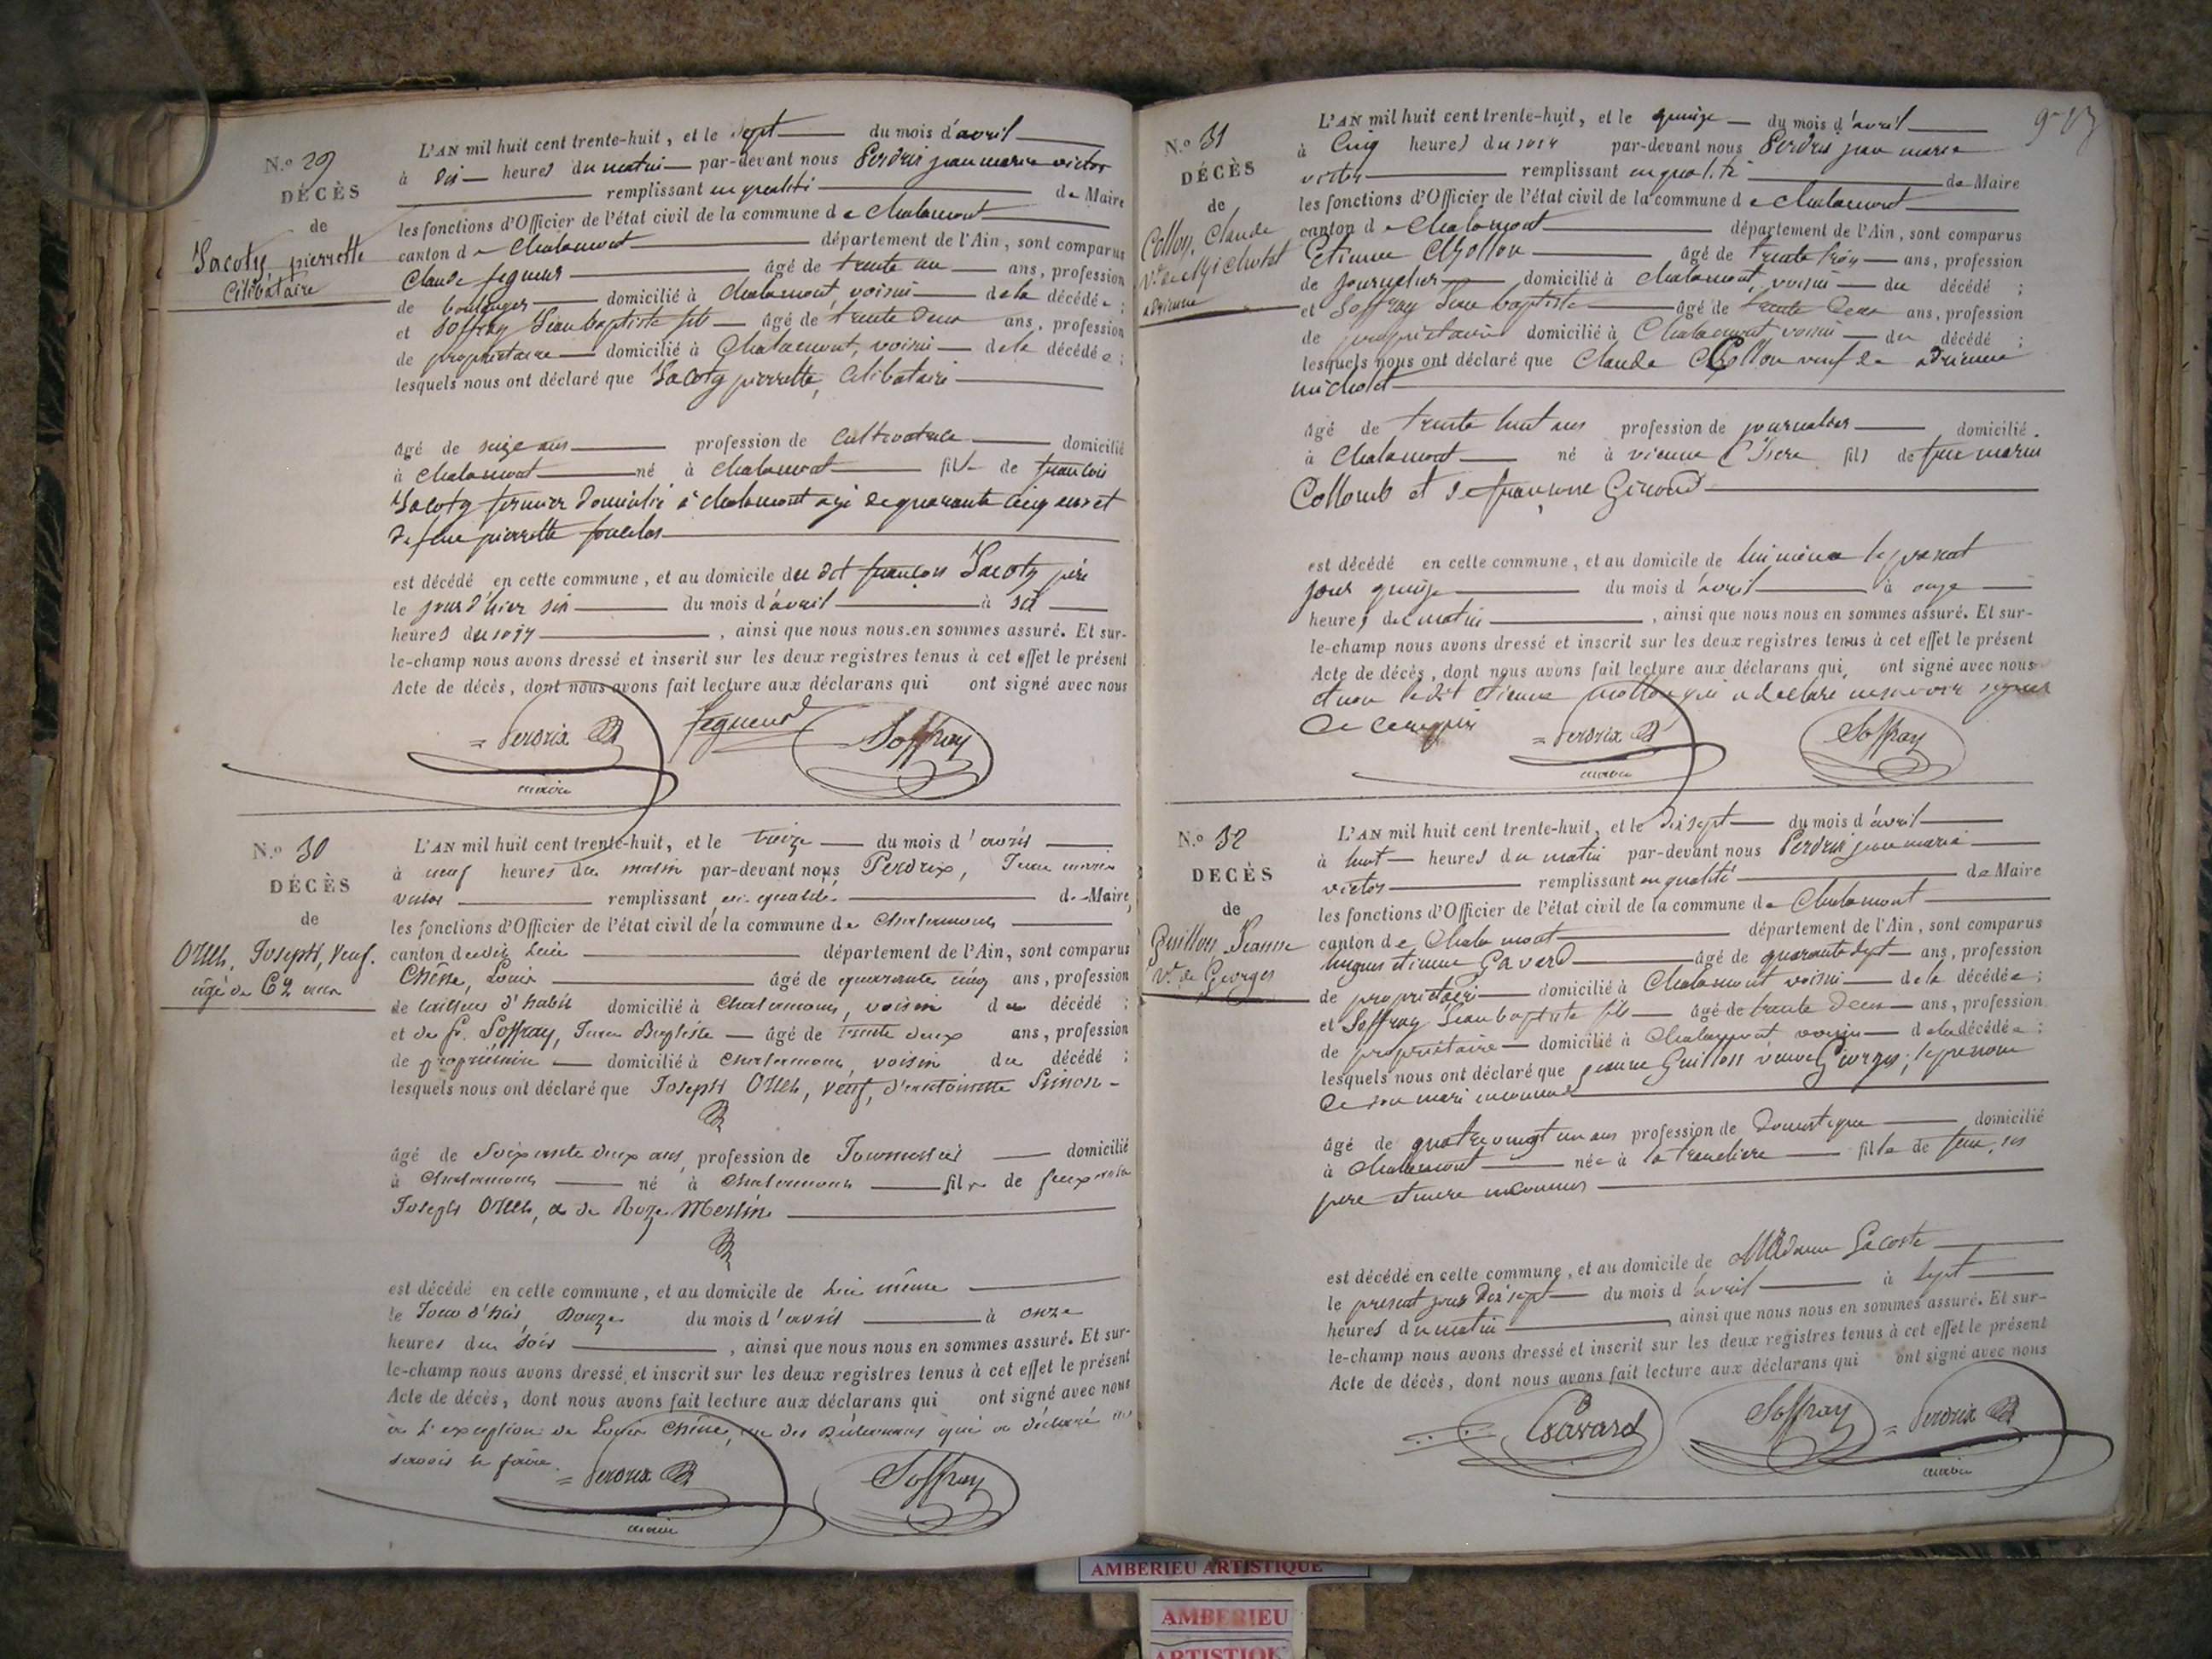 N.o 29
DÉCÈS
de
Jacoty, pierrette
Célibataire
L'AN mil huit cent trente-huit, et le sept du mois d'avril
à dix heures du matin par-devant nous Perdrix jean marie victor
remplissant en qualité de Maire
les fonctions d'Officier de l'état civil de la commune de chalamont
canton de chalamont département de l'Ain, sont comparus
Claude âgé de trente un ans, profession
de boulanger domicilié à chalamont, voisin de la décédée ;
et Soffray Jean baptiste fils âgé de trente deux ans, profession
de propriétaire domicilié à Chalamont, voisin de la décédée ;
lesquels nous ont déclaré que Jacoty pierrette, célibataire
âgé de seize ans profession de cultivatrice domicilié
à chalamont né à chalamont fille de francois
Jacoty fermier domicilié à chalamont agé de quarante cinq ans et
de feue pierrette
est décédé en cette commune, et au domicile du dit françois Jacoty père
le jour d'hier six du mois d'avril à six
heures du soir , ainsi que nous nous en sommes assuré. Et sur-
le-champ nous avons dressé et inscrit sur les deux registres tenus à cet effet le présent
Acte de décès, dont nous avons fait lecture aux déclarans qui ont signé avec nous
= Perdrix Soffray
maire
N.o 30
DÉCÈS
de
Joseph, Veuf.
âgé de 62 ans
L'AN mil huit cent trente-huit, et le treize du mois d'avril
à neuf heures du matin par-devant nous Perdrix, Jean marie
victor remplissant en qualité de Maire,
les fonctions d'Officier de l'état civil de la commune de Chalamont
canton dudit lieu département de l'Ain, sont comparus
Chêne, Louis âgé de quarante cinq ans, profession
de tailleur d'habit domicilié à Chalamont, voisin du décédé ;
et de Sr. Soffray, Jean Baptiste âgé de trente deux ans, profession
de propriétaire domicilié à Chalamont, voisin du décédé ;
lesquels nous ont déclaré que Joseph veuf, d'antoinette Simon
âgé de Soixante deux ans, profession de Journalier domicilié
à Chalamont né à Chalamont fils de feux
Joseph & de Roze
est décédé en cette commune, et au domicile de lui même
le Jour d'hier, Douze du mois d'avril à onze
heures du soir , ainsi que nous nous en sommes assuré. Et sur-
le-champ nous avons dressé et inscrit sur les deux registres tenus à cet effet le présent
Acte de décès, dont nous avons fait lecture aux déclarans qui ont signé avec nous
à l'exception de Louis Chêne, un des déclarans qui a déclaré ne
savoir le faire.
= Perdrix Soffray
maire
N.o 31
DÉCÈS
de
Collon, Claude
Vf. de Micholet
adrienne
L'AN mil huit cent trente-huit, et le quinze du mois d'avril
à cinq heures du soir par-devant nous Perdrix jean marie
victor remplissant en qualité de Maire
les fonctions d'Officier de l'état civil de la commune de chalamont
canton de chalamont département de l'Ain, sont comparus
Etienne âgé de trente trois ans, profession
de journalier domicilié à chalamont, voisin du décédé ;
et Soffray Jean baptiste âgé de trente deux ans, profession
de propriétaire domicilié à Chalamont voisin du décédé ;
lesquels nous ont déclaré que Claude Collon veuf de adrienne
micholet
âgé de trente huit ans profession de journalier domicilié
à Chalamont né à vienne L'Isere fils de feu marin
Collomb et de françoise Giroud
est décédé en cette commune, et au domicile de lui même le present
jour quinze du mois d'avril à onze
heures du matin , ainsi que nous nous en sommes assuré. Et sur-
le-champ nous avons dressé et inscrit sur les deux registres tenus à cet effet le présent
Acte de décès, dont nous avons fait lecture aux déclarans qui, ont signé avec nous
et non le dit Etienne qui a déclaré ne savoir signer
de ce requis
= Perdrix Soffray
maire
N.o 32
DECÈS
de
Guillon Jeanne
Ve. de Georges
L'AN mil huit cent trente-huit, et le dix sept du mois d'avril
à huit heures du matin par-devant nous Perdrix jean marie
victor remplissant en qualité de Maire
les fonctions d'Officier de l'état civil de la commune de Chalamont
canton de Chalamont département de l'Ain, sont comparus
hugues etienne Gavard âgé de quarante sept ans, profession
de propriétaire domicilié à Chalamont voisin de la décédée ;
et Soffray Jean baptiste fils âgé de trente deux ans, profession
de propriétaire domicilié à Chalamont voisin de la décédée ;
lesquels nous ont déclaré que jeanne Guillon veuve Georges, le prenom
de son mari inconnu
âgé de quatre vingt un ans profession de Domestique domicilié
à chalamont née à la tranclière fille de feus, ses
pere et mere inconnus
est décédé en cette commune, et au domicile de Madame Lacoste
le present jour dix sept du mois d'avril à sept
heures du matin , ainsi que nous nous en sommes assuré. Et sur-
le-champ nous avons dressé et inscrit sur les deux registres tenus à cet effet le présent
Acte de décès, dont nous avons fait lecture aux déclarans qui ont signé avec nous
Gavard Soffray = Perdrix
maire
AMBERIEU ARTISTIQUE
AMBERIEU